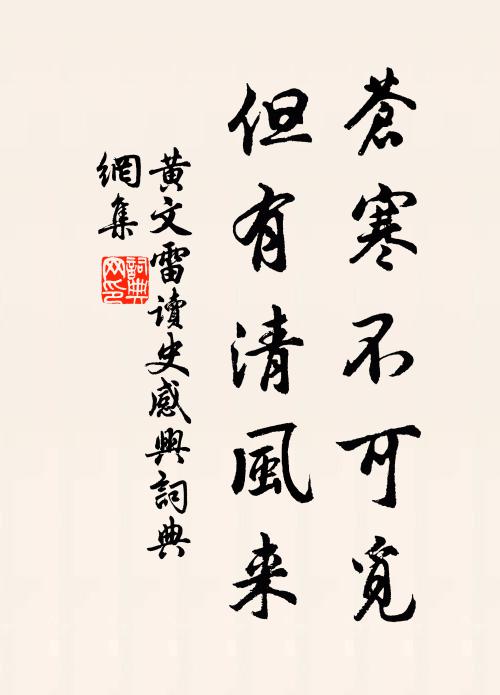 蒼寒不可覓
但有清風来
黃文雷讀史感興詞典
網集
詞典網印